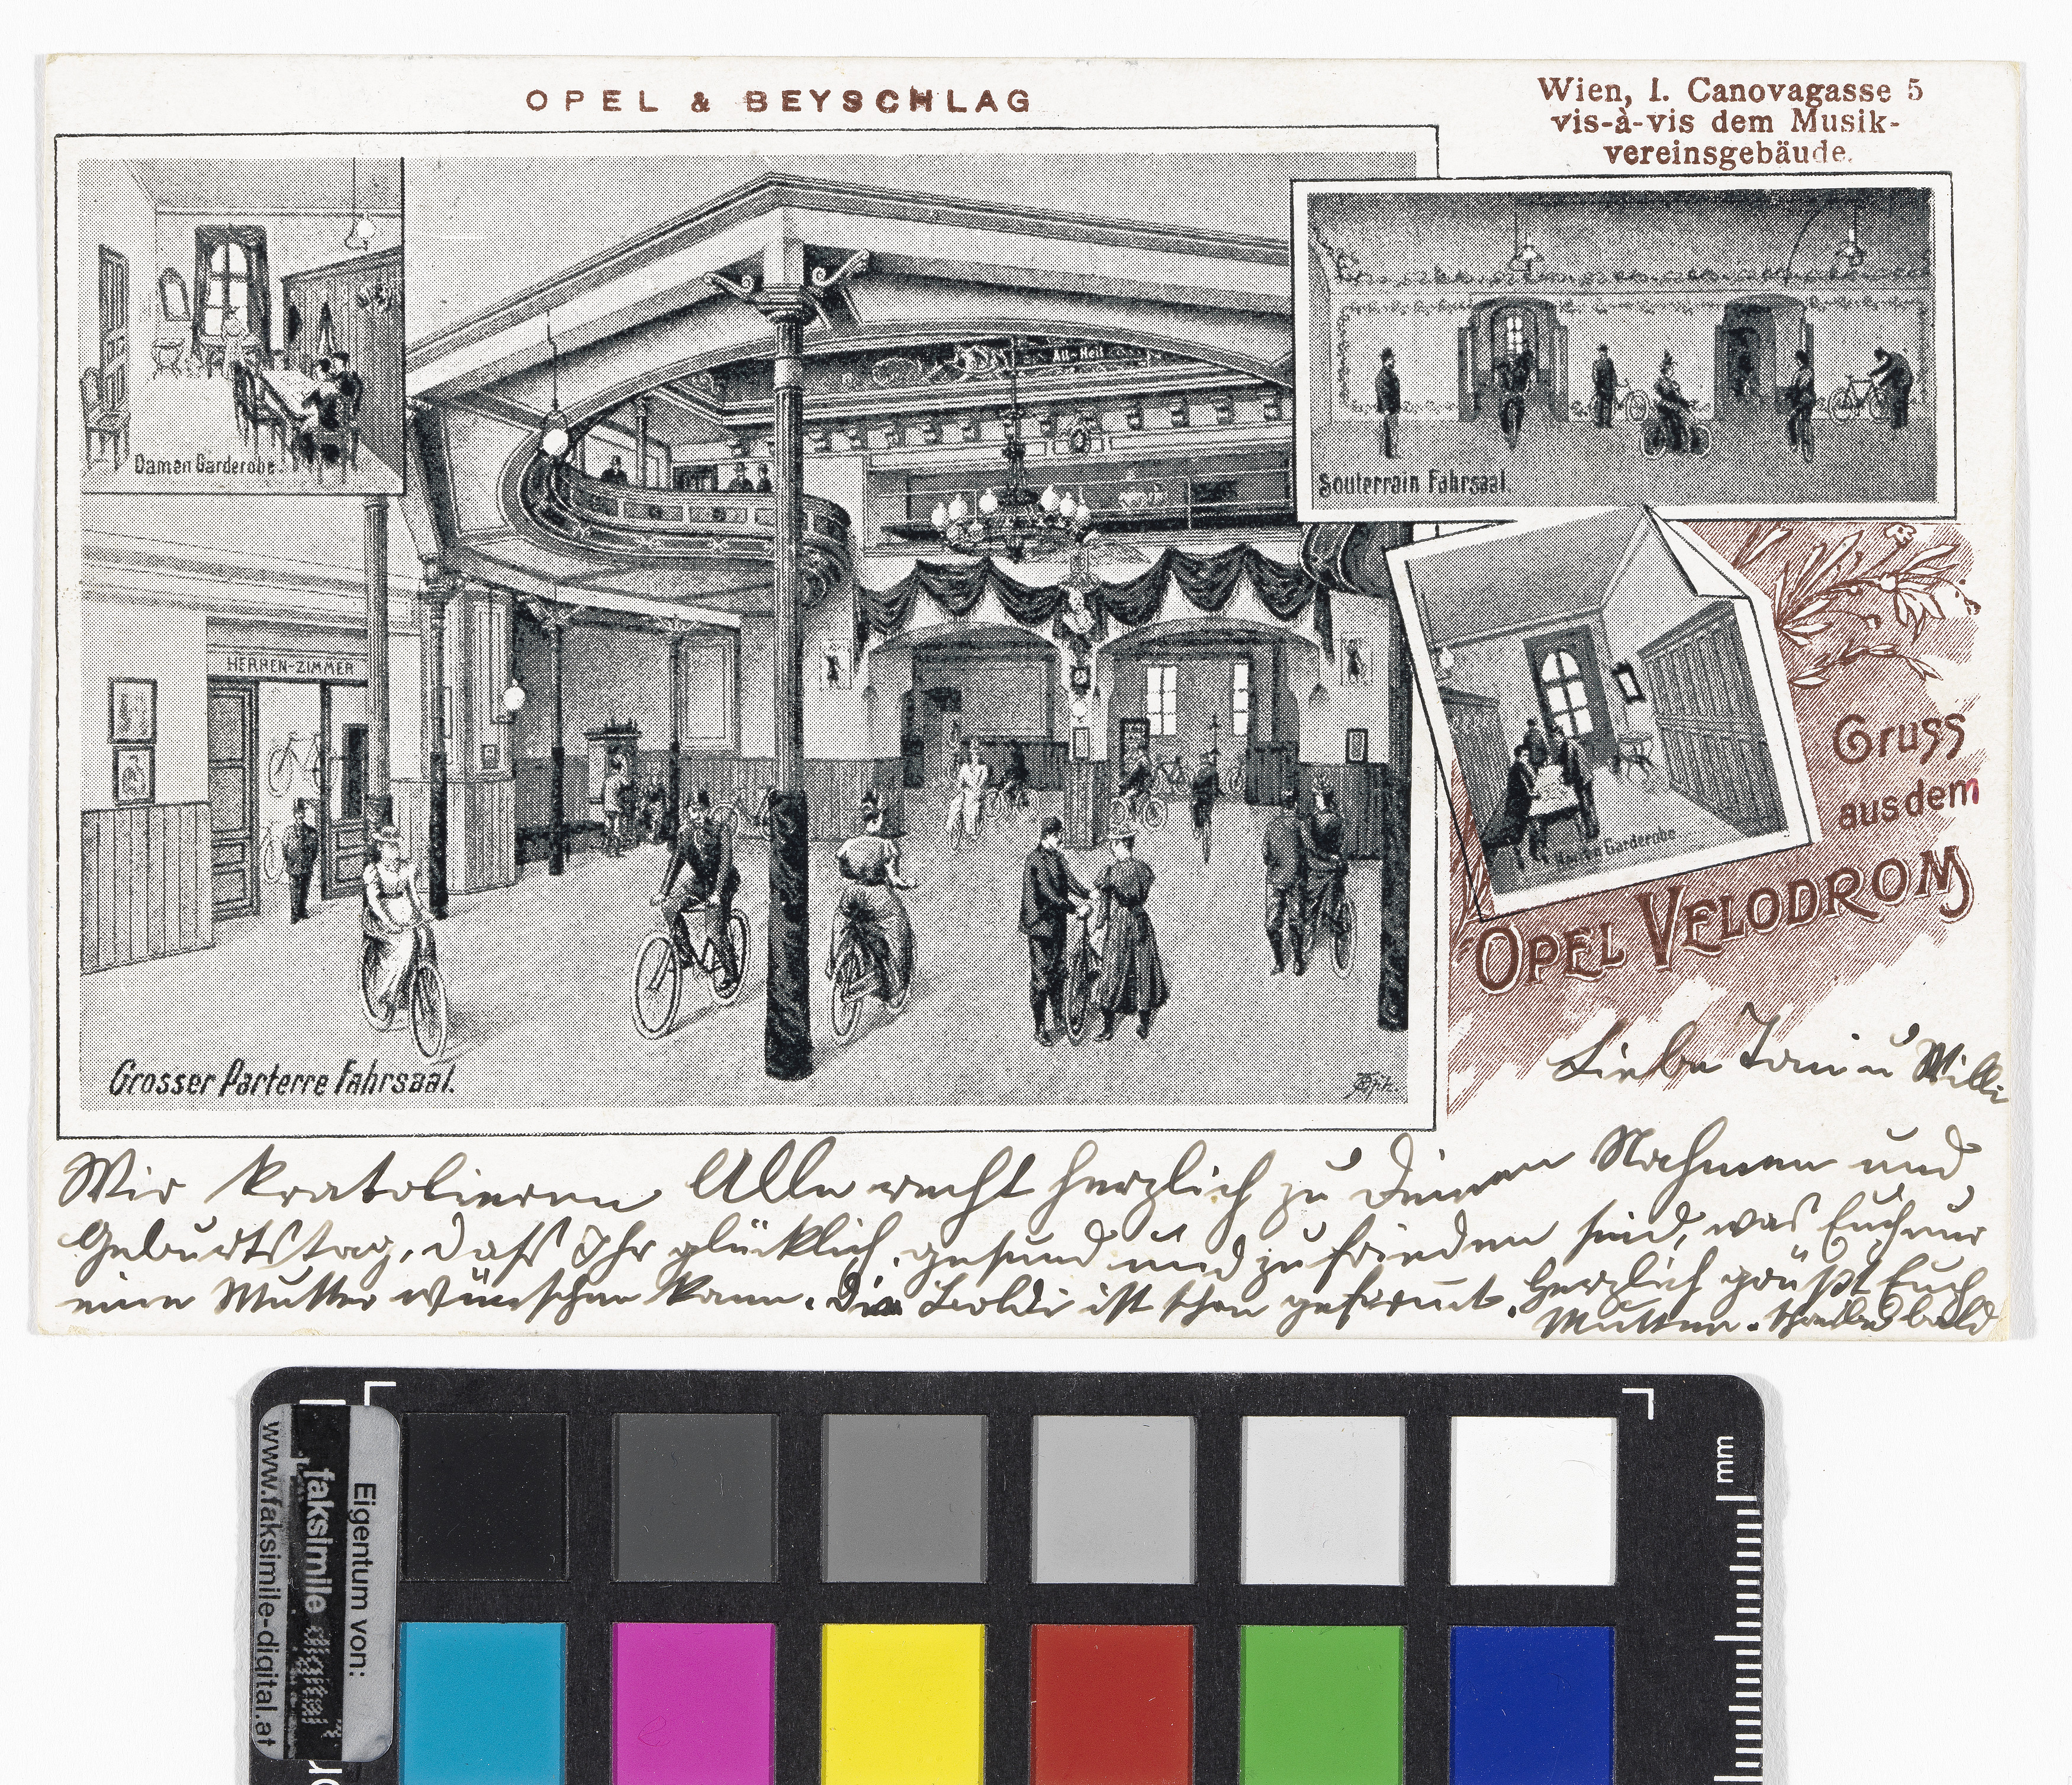 OPEL & BEYSCHLAG
Wien, I. Canovagasse 5
vis-à-vis dem Musik-
vereinsgebäude.
Damen Garderobe.
All-Heil
Souterrain Fahrsaal.
HERREN-ZIMMER
Herren Garderobe
Gruss
aus dem
OPEL VELODROM
Grosser Parterre Fahrsaal.
Liebe Toni u Willi
Wir kratolieren Alle recht herzlich zu Deinen Nahmen und
Geburtstag, daß Ihr glücklich, gesund und zufrieden seid, was Euch nur
eine Mutter wünschen kann. Die Poldi ist schon gefirmt. Herzlich grüßt Euch
Mutter. schreibe bald
Eigentum von:
faksimile digital
www.faksimile-digital.at
mm